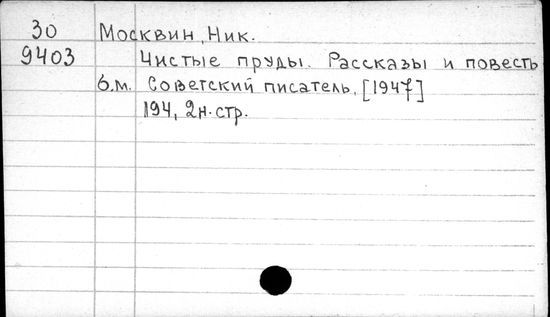 30 Москвин, Ник.
9403 Чистые пруды. Рассказы и повесть
б.м. Советский писатель, [1947]
194, 2н. стр.